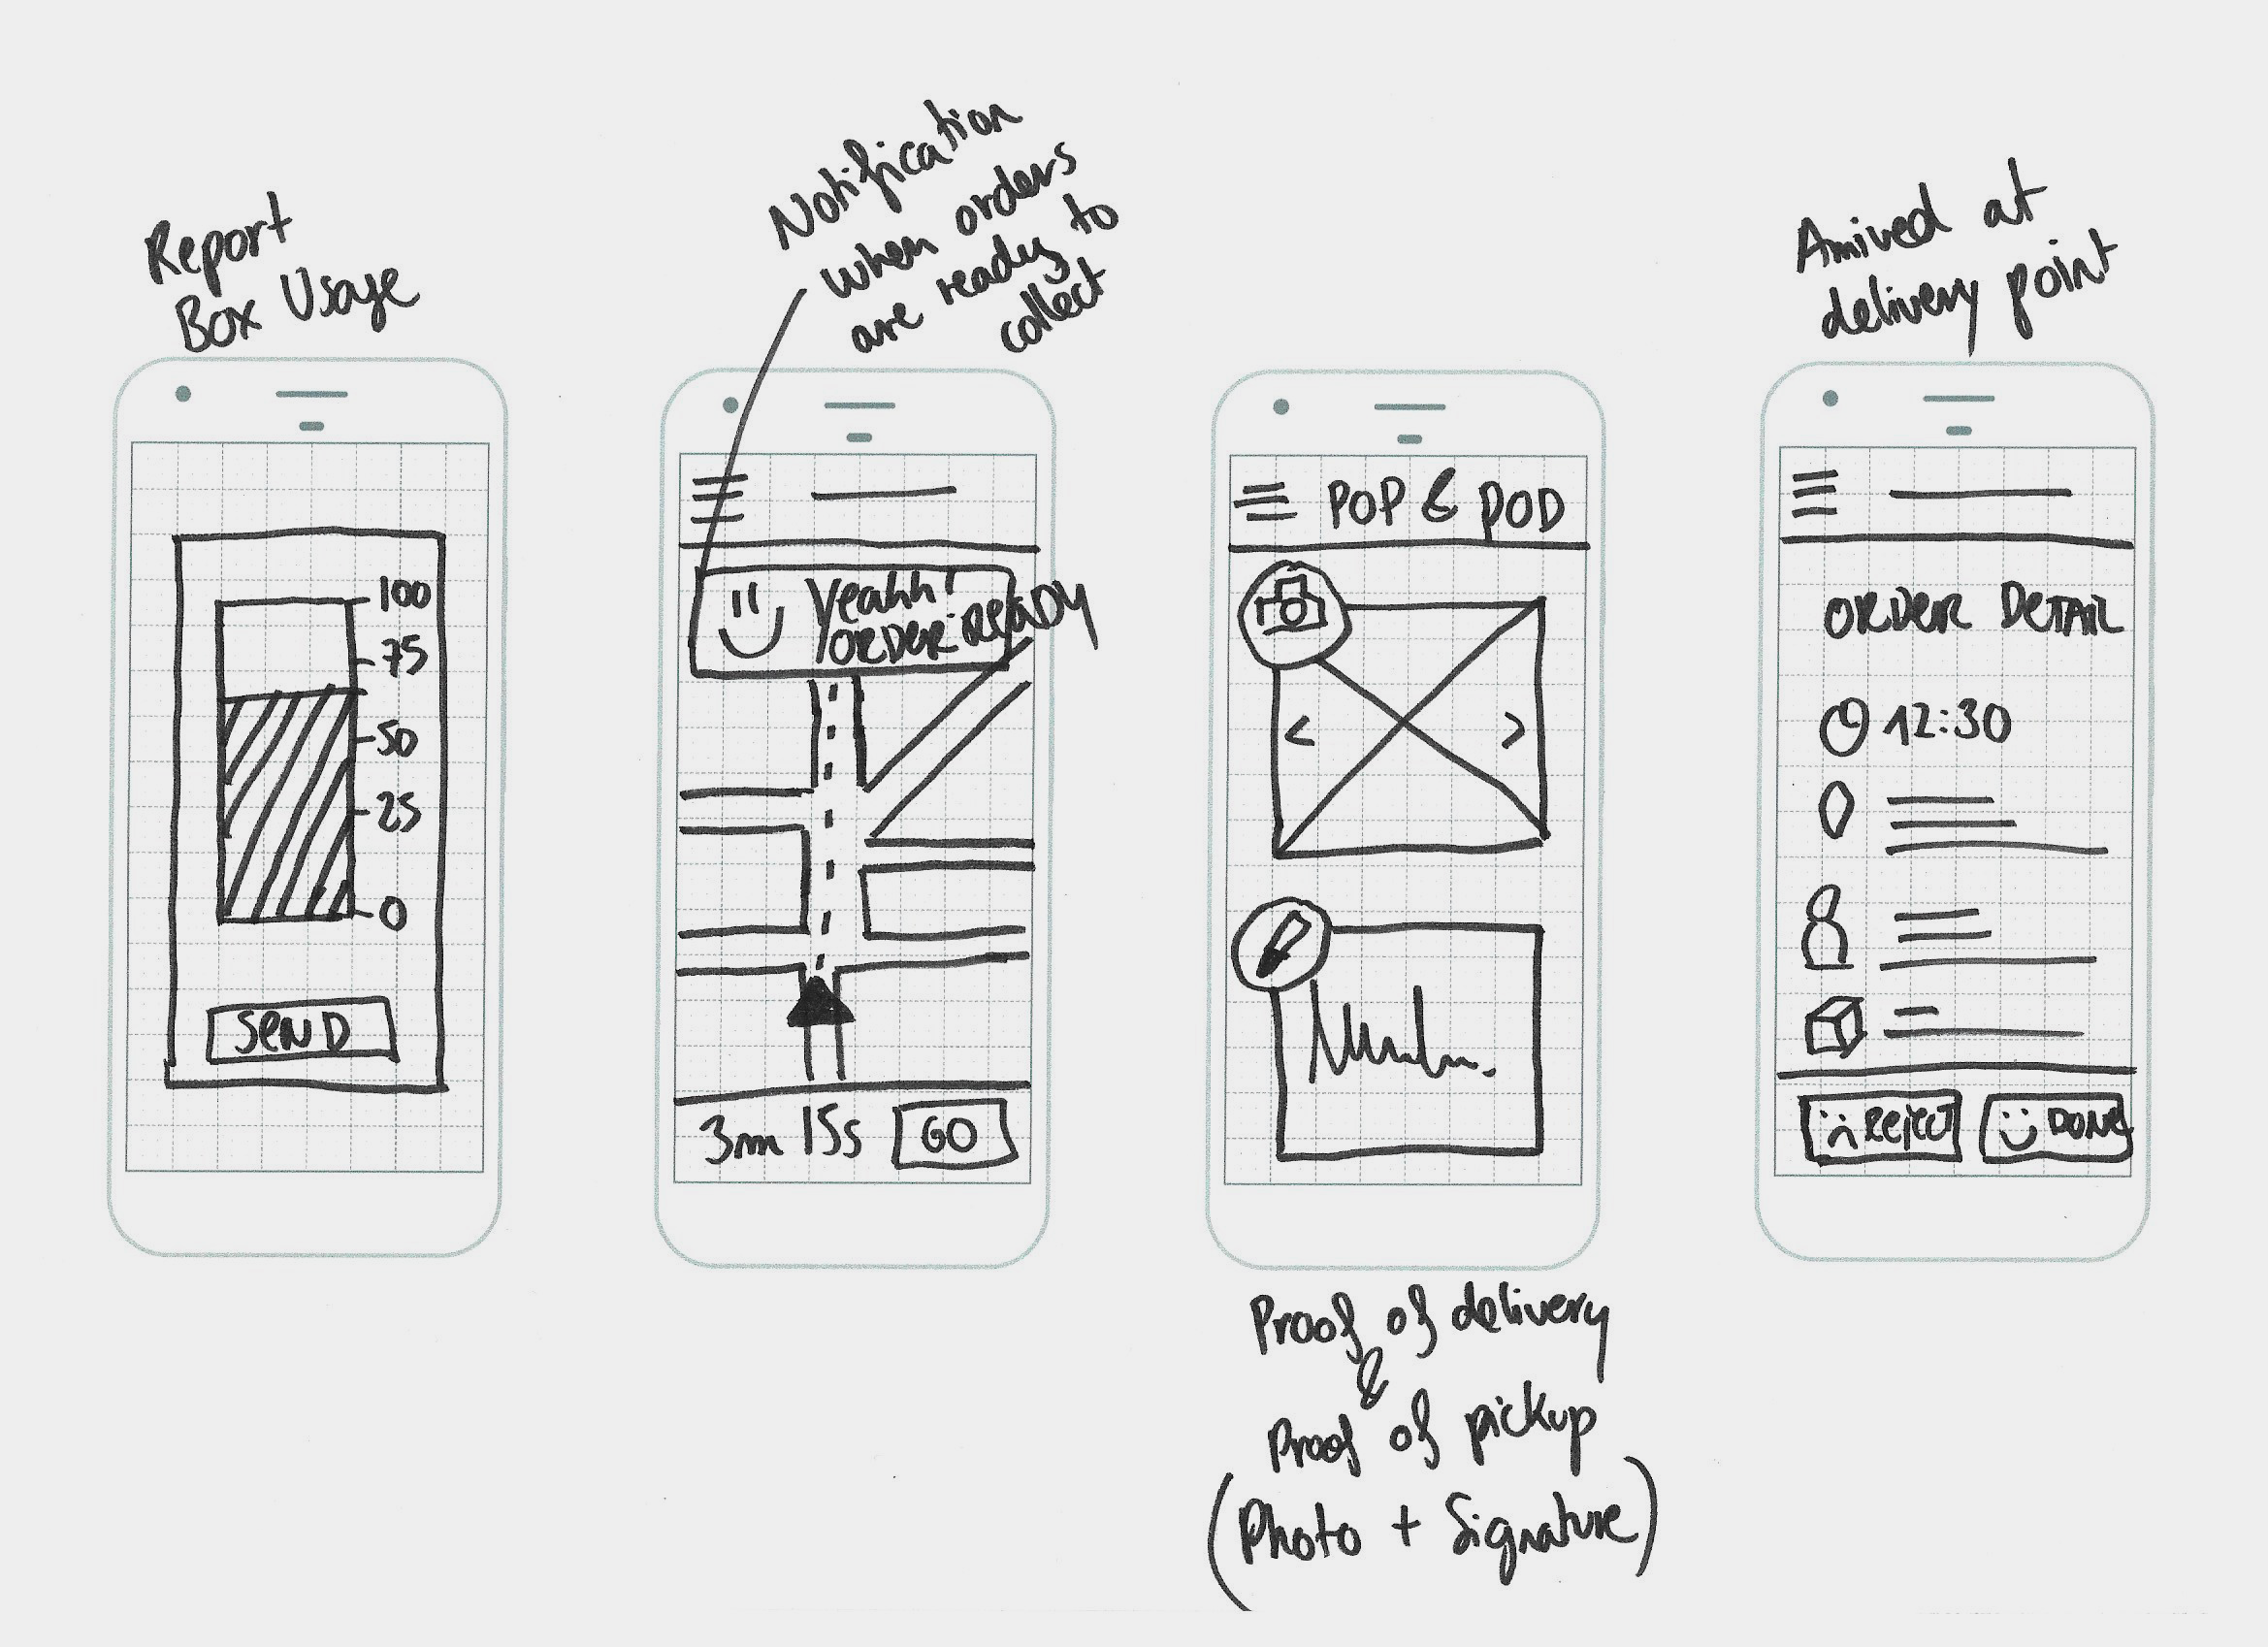 Report
Box Usage
100
75
50
25
0
SEND
Notification
when orders
are ready to
collect
Yeahh!
ORDER READY
3m 15s
GO
POP & POD
<
>
Proof of delivery
&
Proof of pickup
(Photo + Signature)
Arrived at
delivery point
ORDER DETAIL
12:30
REJECT
DONE